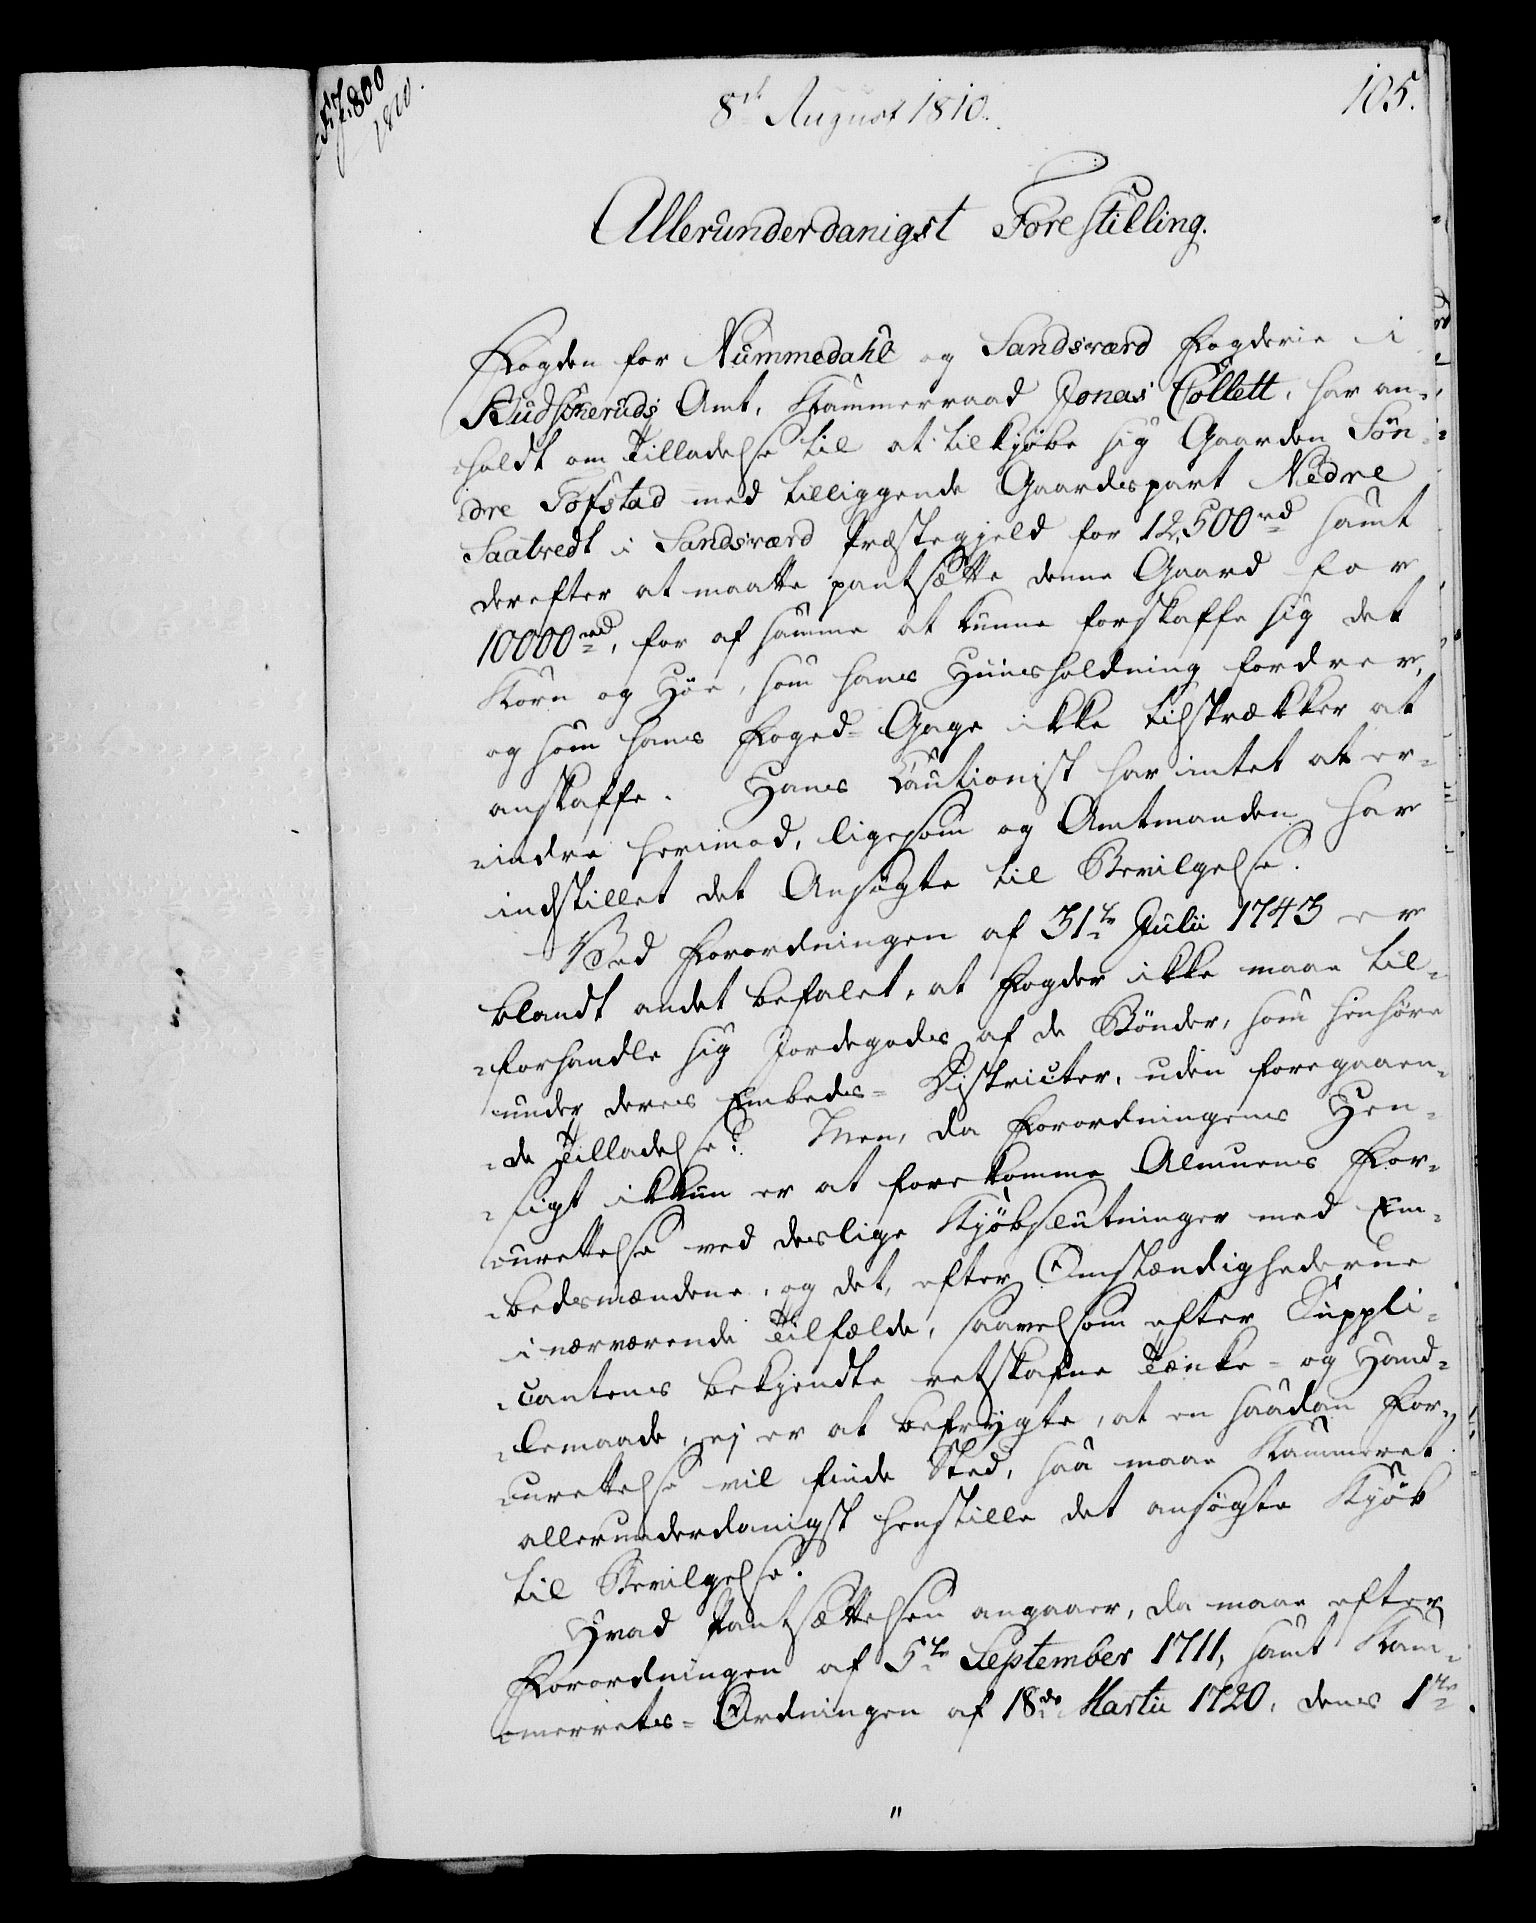 8de August 1810.
105.
1810.
Allerunderdanigst Forestilling.
Fogden for Nummedahl og Sandsværd Fogderie i
Budscheruds Amt, Kammerraad Jonas Collett, har an-
holdt om Tilladelse til at tilkjøbe sig Gaarden Søn-
dre Tofstad med tilliggende Gaardspart Nedre
Saatvedt i Sandsværd Præstegjeld for 12,500rd samt
derefter at maatte pantsætte denne Gaard for
10000rd, for af samme at kunne forskaffe sig det
Korn og Høe, som hans Huusholdning fordrer,
og som hans Foged-Gage ikke tilstrækker at
anskaffe. Hans Cautionist har intet at er-
indre herimod, ligesom og Amtmanden har
indstillet det Ansøgte til Bevilgelse.
Ved Forordningen af 31te Julii 1743 er
blandt andet befalet, at Fogder ikke maae til-
forhandle sig Jordegods af de Bønder, som henhøre
under deres Embeds-Districter, uden foregaaen-
de Tilladelse. Men, da Forordningens Hen-
sigt ikkun er at forekomme Almuens For-
urettelse ved deslige Kjøbslutninger med Em-
bedsmændene, og det, efter Omstændighederne
i nærværende Tilfælde, saavelsom efter Suppli-
cantens bekjendte retskafne Tænke- og Hand-
lemaade, ej er at befrygte, at en saadan For-
urettelse vil finde Sted, saa maae Kammeret
allerunderdanigst henstille det ansøgte Kjøb
til Bevilgelse.
Hvad Pantsættelsen angaaer, da maae efter
Forordningen af 5te September 1711, samt Kam-
merrets-Ordningen af 18de Martii 1720, dens 1te
"